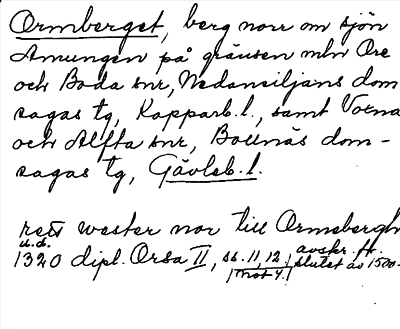 Ormberget, berg norr om sjön
Amungen på gränsen mln Ore
och Boda snr, Nedansiljans dom
sagas tg, Kopparb. l., samt Voxna
och Alfta snr, Bollnäs dom-
sagas tg, Gävleb. l.
rett wester nor till Ormsbergh
u.d.
1320 dipl. Orsa II, ss. 11, 12, avskr. fr.
slutet av 1500-